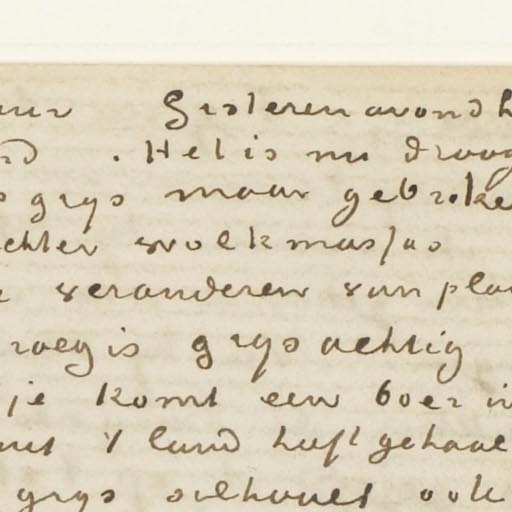 uur Gisteren avond h
nd . Het is nu droog
s grys maar gebroke
echter wolkmassas
e veranderen van plaa
roeg is grysachtig
je komt een boer in
met 't land heeft gehaal
grys silhouet ook